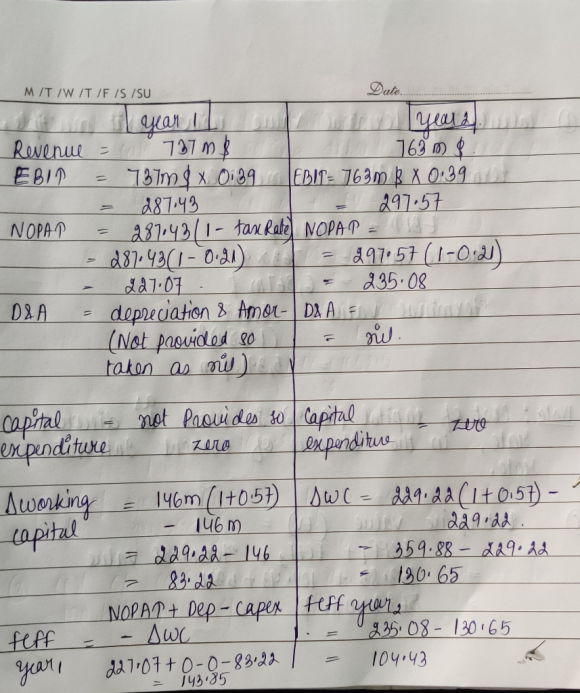 M / T / W / T / F / S / SU Date.
year 1 year 2.
Revenue = 737 m $ 763 m $
EBIT = 737m $ x 0.39 EBIT = 763m $ x 0.39
= 287.43 = 297.57
NOPAT = 287.43(1 - tax Rate) NOPAT =
= 287.43(1 - 0.21) = 297.57 (1-0.21)
= 227.07 . = 235.08
D&A = depreciation & Amor- D&A =
(Not provided so = nil.
taken as nil)
Capital = not Provides so Capital = zero
expenditure zero expenditure
Δworking = 146m (1+0.57) ΔWC = 229.22 (1+0.57) -
capital - 146m 229.22 .
= 229.22 - 146 = 359.88 - 229.22
= 83.22 = 130.65
NOPAT + Dep - Capex fcff year2
fcff = - ΔWC = 235.08 - 130.65
year1 227.07 + 0 - 0 - 83.22 = 104.43
= 143.85